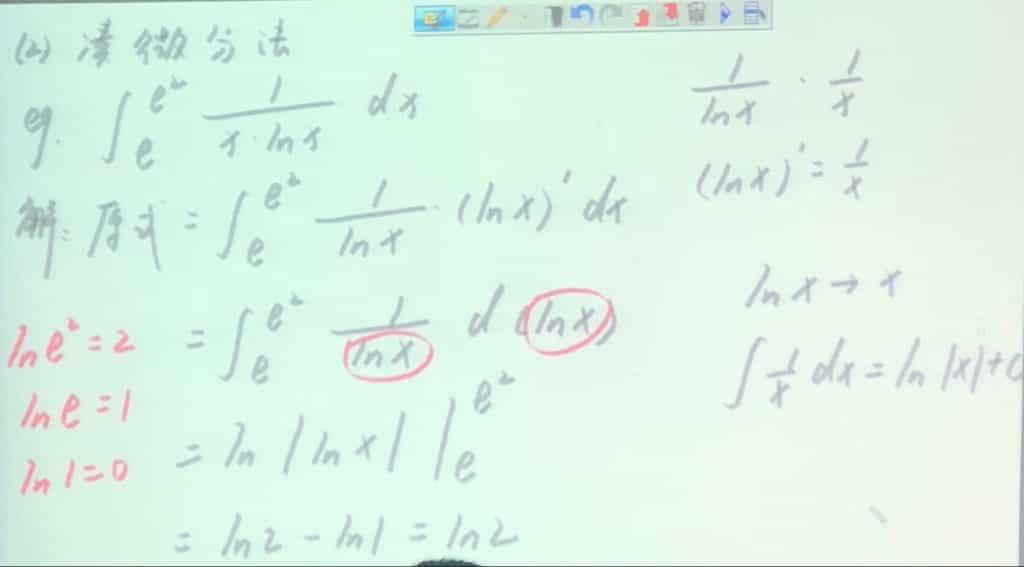 (2) 凑微分法
eg. ∫_e^{e²} 1/(x·lnx) dx
解: 原式 = ∫_e^{e²} 1/lnx · (lnx)' dx
= ∫_e^{e²} 1/lnx d(lnx)
= ln|lnx| |_e^{e²}
= ln2 - ln1 = ln2
ln e² = 2
ln e = 1
ln 1 = 0
1/lnx · 1/x
(lnx)' = 1/x
lnx → x
∫ 1/x dx = ln|x| + C